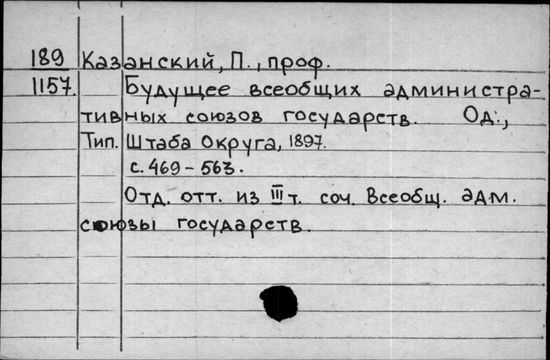 189 Казанский, П., проф.
1157. Будущее всеобщих администра-
тивных союзов государств. Од.,
Тип. Штаба Округа, 1897.
с. 469 - 563.
Отд. отт. из III т. соч. Всеобщ. адм.
союзы государств.